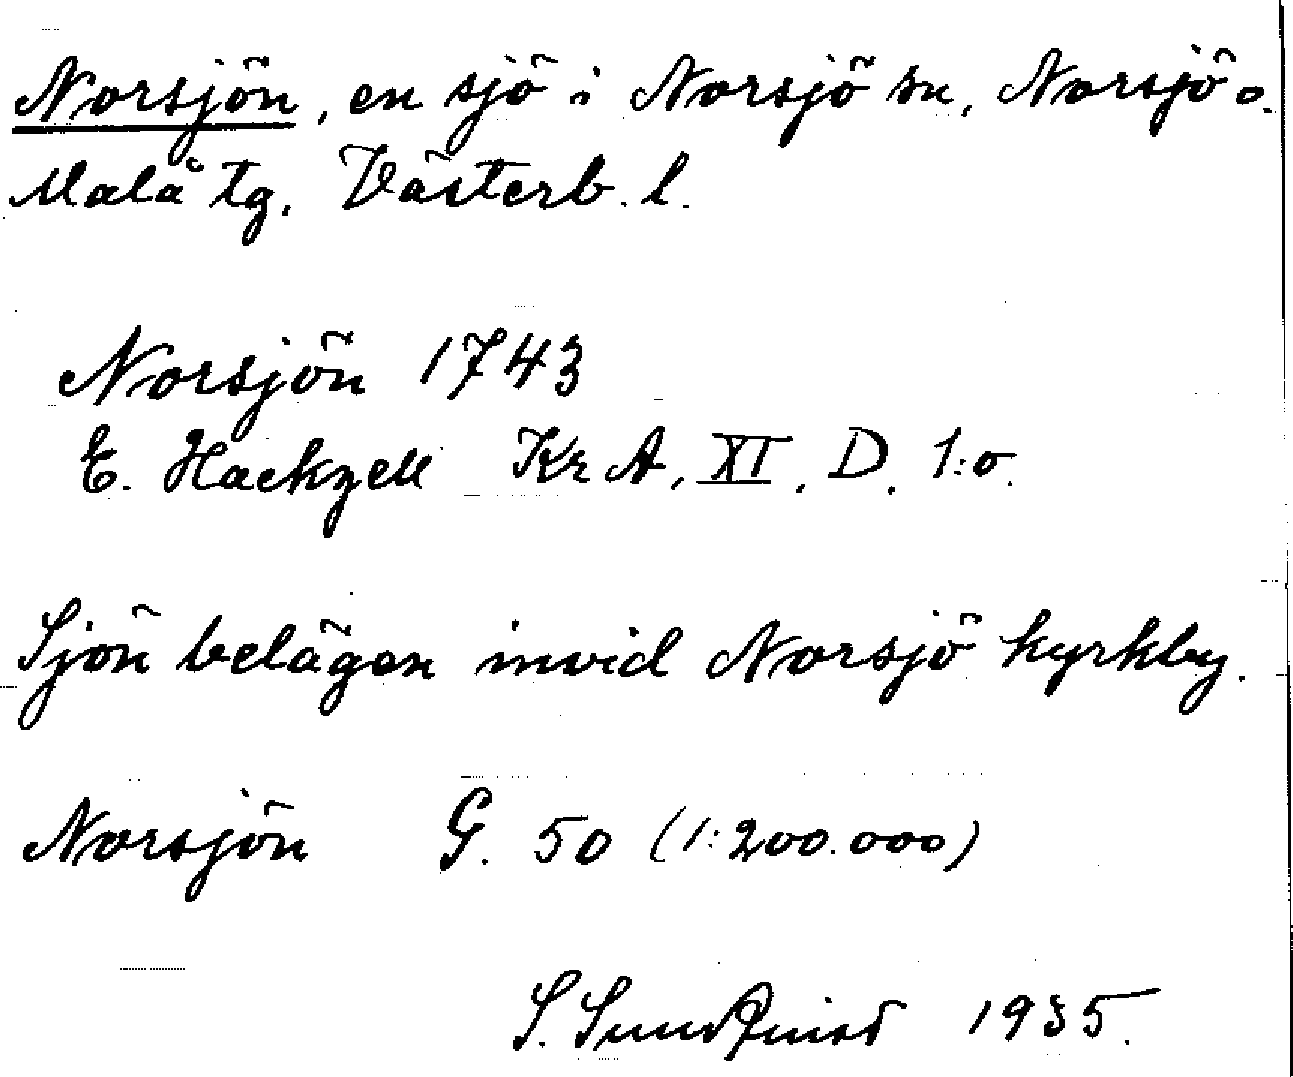 Norsjön, en sjö i Norsjö sn, Norsjö o.
Malå tg. Västerb. l.
Norsjön 1743
E. Hackzell Kr A, XI. D. 1:o.
Sjön belägen invid Norsjö kyrkby.
Norsjön G. 50 (1:200.000)
S. Sundquist 1935.